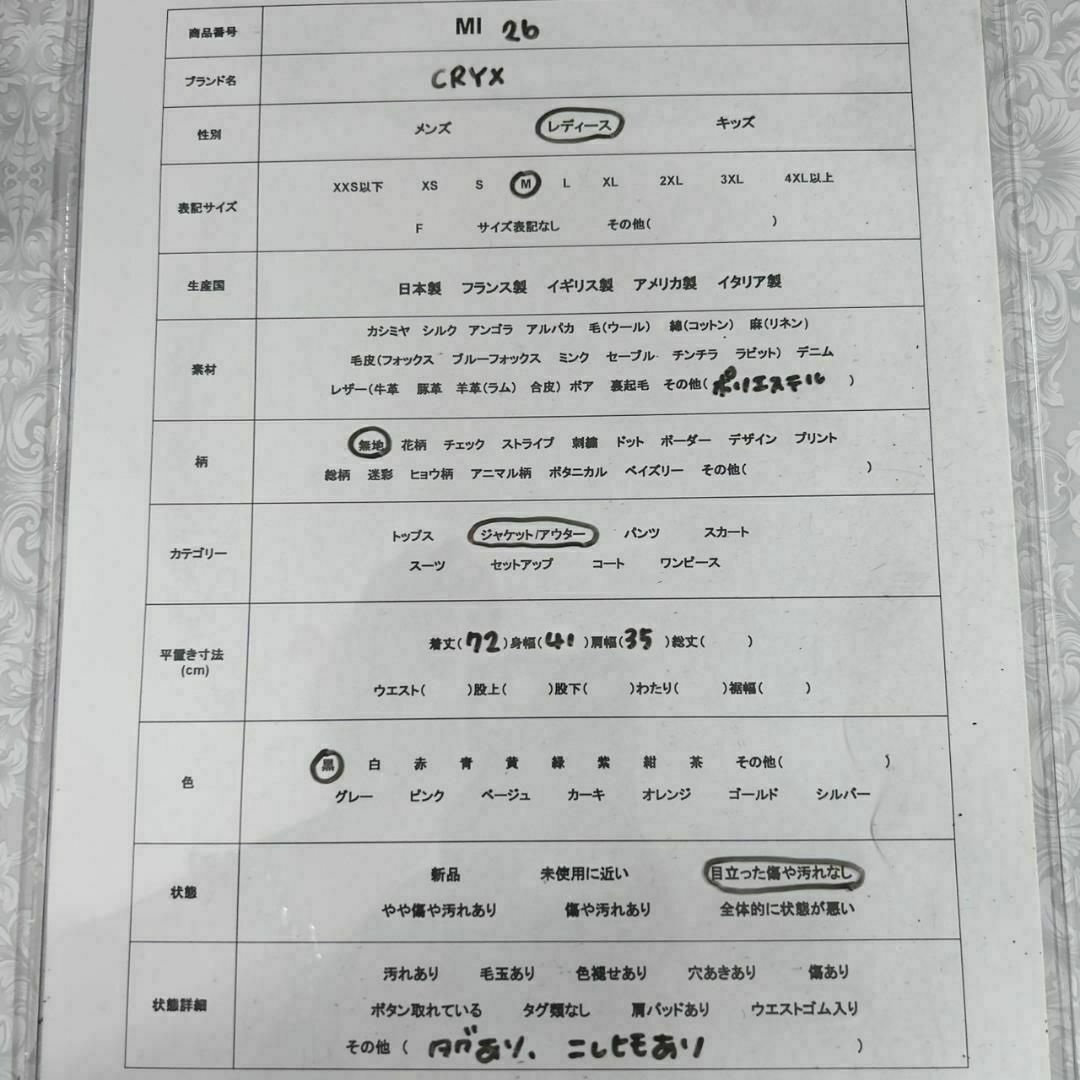 商品番号 MI 26
ブランド名 CRYX
性別 メンズ レディース キッズ
XXS以下 XS S M L XL 2XL 3XL 4XL以上
表記サイズ
F サイズ表記なし その他( )
生産国 日本製 フランス製 イギリス製 アメリカ製 イタリア製
カシミヤ シルク アンゴラ アルパカ 毛(ウール) 綿(コットン) 麻(リネン)
毛皮(フォックス ブルーフォックス ミンク セーブル チンチラ ラビット) デニム
素材
レザー(牛革 豚革 羊革(ラム) 合皮) ボア 裏起毛 その他(ポリエステル )
無地 花柄 チェック ストライプ 刺繍 ドット ボーダー デザイン プリント
柄
総柄 迷彩 ヒョウ柄 アニマル柄 ボタニカル ペイズリー その他( )
トップス ジャケット/アウター パンツ スカート
カテゴリー
スーツ セットアップ コート ワンピース
着丈(72)身幅(41)肩幅(35)総丈( )
平置き寸法
(cm)
ウエスト( )股上( )股下( )わたり( )裾幅( )
黒 白 赤 青 黄 緑 紫 紺 茶 その他( )
色
グレー ピンク ベージュ カーキ オレンジ ゴールド シルバー
新品 未使用に近い 目立った傷や汚れなし
状態
やや傷や汚れあり 傷や汚れあり 全体的に状態が悪い
汚れあり 毛玉あり 色褪せあり 穴あきあり 傷あり
状態詳細 ボタン取れている タグ類なし 肩パッドあり ウエストゴム入り
その他 ( タグあり、 こしヒモあり )